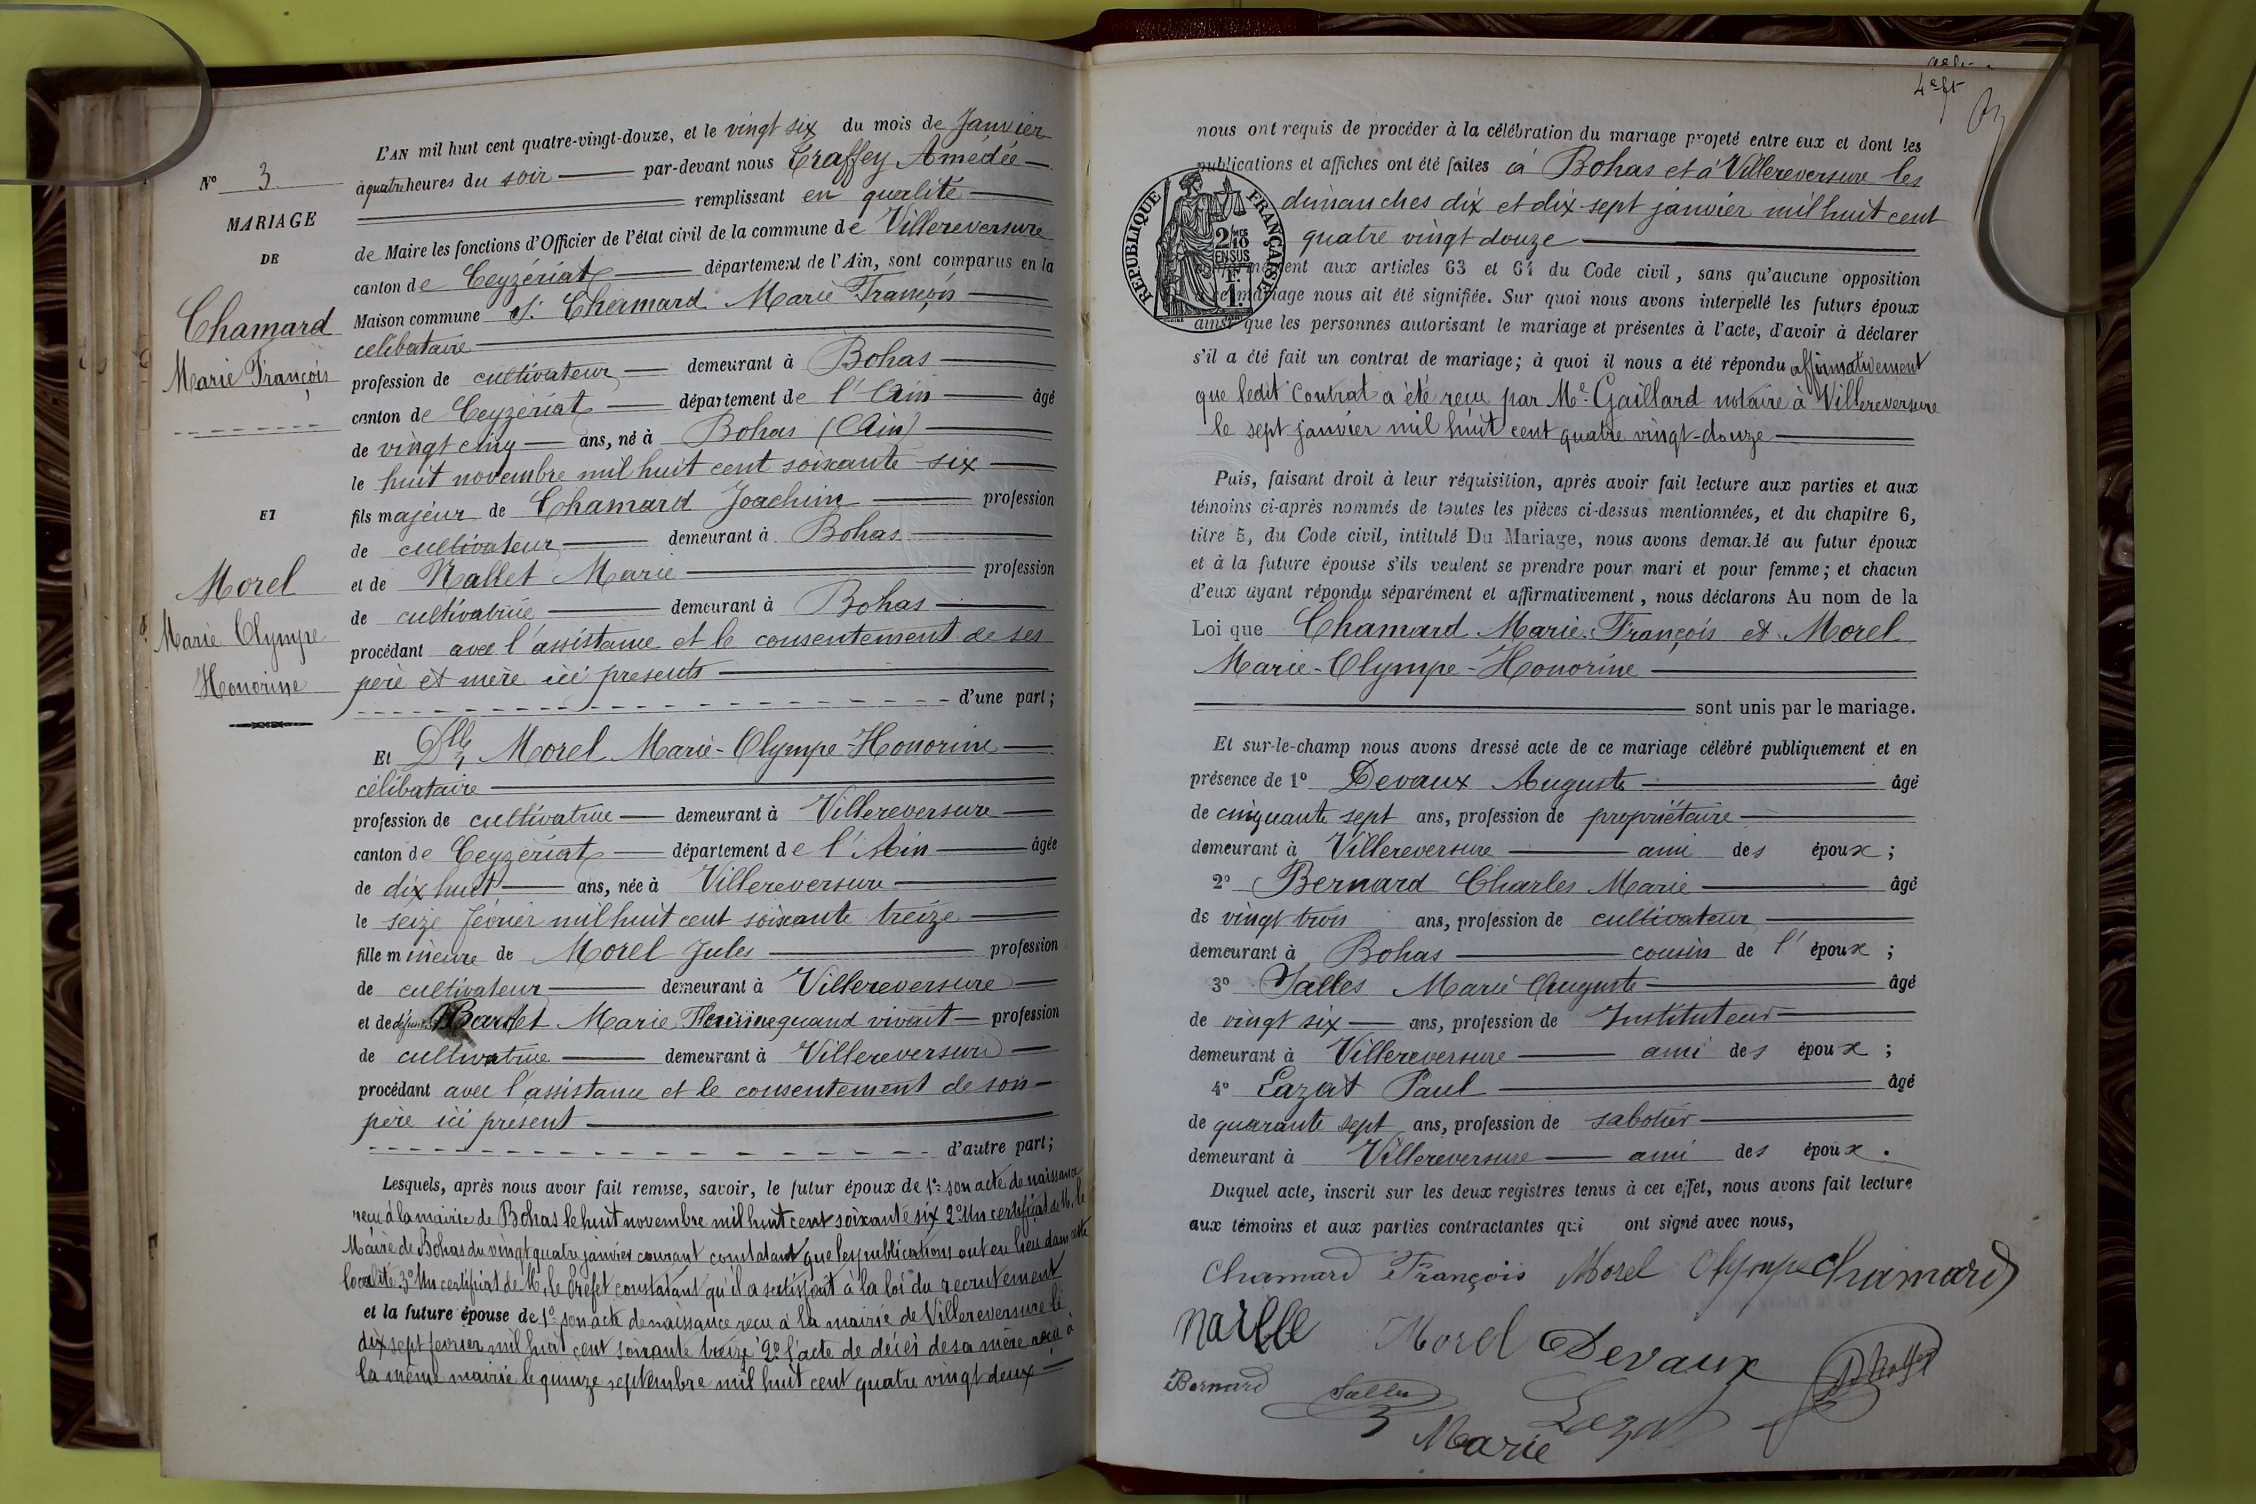 L'AN mil huit cent quatre-vingt-douze, et le vingt six du mois de Janvier
N° 3
à quatre heures du soir par-devant nous Traffey Amédée
remplissant en qualité
MARIAGE
de Maire les fonctions d'Officier de l'état civil de la commune de Villereversure
DE
canton de Ceyzériat département de l'Ain, sont comparus en la
Chamard
Maison commune Sr Chamard Marie François
célibataire
Marie François
profession de cultivateur demeurant à Bohas
canton de Ceyzériat département de l'Ain âgé
de vingt cinq ans, né à Bohas (Ain)
le huit novembre mil huit cent soixante six
ET
fils majeur de Chamard Joachim profession
de cultivateur demeurant à Bohas
Morel
et de Nallet Marie profession
de cultivatrice demeurant à Bohas
Marie Olympe
procédant avec l'assistance et le consentement de ses
Honorine
père et mère ici présents
d'une part;
Et Dlle Morel Marie-Olympe-Honorine
célibataire
profession de cultivatrice demeurant à Villereversure
canton de Ceyzériat département de l'Ain âgée
de dix huit ans, née à Villereversure
le seize février mil huit cent soixante treize
fille mineure de Morel Jules profession
de cultivateur demeurant à Villereversure
et de défunte Marie quand vivait profession
de cultivatrice demeurant à Villereversure
procédant avec l'assistance et le consentement de son
père ici présent
d'autre part;
Lesquels, après nous avoir fait remise, savoir, le futur époux de 1° son acte de naissance
reçu à la mairie de Bohas le huit novembre mil huit cent soixante six 2° Un certificat de M. le
Maire de Bohas du vingt quatre janvier courant constatant que les publications ont eu lieu dans cette
localité 3° Un certificat de M. le Préfet constatant qu'il a satisfait à la loi du recrutement
et la future épouse de 1° son acte de naissance reçu à la mairie de Villereversure le
dix sept février mil huit cent soixante treize 2° l'acte de décès de sa mère reçu à
la même mairie le quinze septembre mil huit cent quatre vingt deux
nous ont requis de procéder à la célébration du mariage projeté entre eux et dont les
publications et affiches ont été faites à Bohas et à Villereversure les
dimanches dix et dix-sept janvier mil huit cent
quatre vingt douze
RÉPUBLIQUE FRANÇAISE
2/10 EN SUS
1 F.
conformément aux articles 63 et 64 du Code civil, sans qu'aucune opposition
à ce mariage nous ait été signifiée. Sur quoi nous avons interpellé les futurs époux
ainsi que les personnes autorisant le mariage et présentes à l'acte, d'avoir à déclarer
s'il a été fait un contrat de mariage; à quoi il nous a été répondu affirmativement
que ledit contrat a été reçu par Me Gaillard notaire à Villereversure
le sept janvier mil huit cent quatre vingt-douze
Puis, faisant droit à leur réquisition, après avoir fait lecture aux parties et aux
témoins ci-après nommés de toutes les pièces ci-dessus mentionnées, et du chapitre 6,
titre 5, du Code civil, intitulé Du Mariage, nous avons demandé au futur époux
et à la future épouse s'ils veulent se prendre pour mari et pour femme; et chacun
d'eux ayant répondu séparément et affirmativement, nous déclarons Au nom de la
Loi que Chamard Marie-François et Morel
Marie-Olympe-Honorine
sont unis par le mariage.
Et sur-le-champ nous avons dressé acte de ce mariage célébré publiquement et en
présence de 1° Devaux Auguste âgé
de cinquante sept ans, profession de propriétaire
demeurant à Villereversure ami des époux;
2° Bernard Charles Marie âgé
de vingt trois ans, profession de cultivateur
demeurant à Bohas cousin de l'époux;
3° Salles Marie Auguste âgé
de vingt six ans, profession de Instituteur
demeurant à Villereversure ami des époux;
4° Lazat Paul âgé
de quarante sept ans, profession de sabotier
demeurant à Villereversure ami des époux.
Duquel acte, inscrit sur les deux registres tenus à cet effet, nous avons fait lecture
aux témoins et aux parties contractantes qui ont signé avec nous,
Chamard François Morel Olympe Chamard
Morel Devaux
Bernard Salles Lazat
Marie